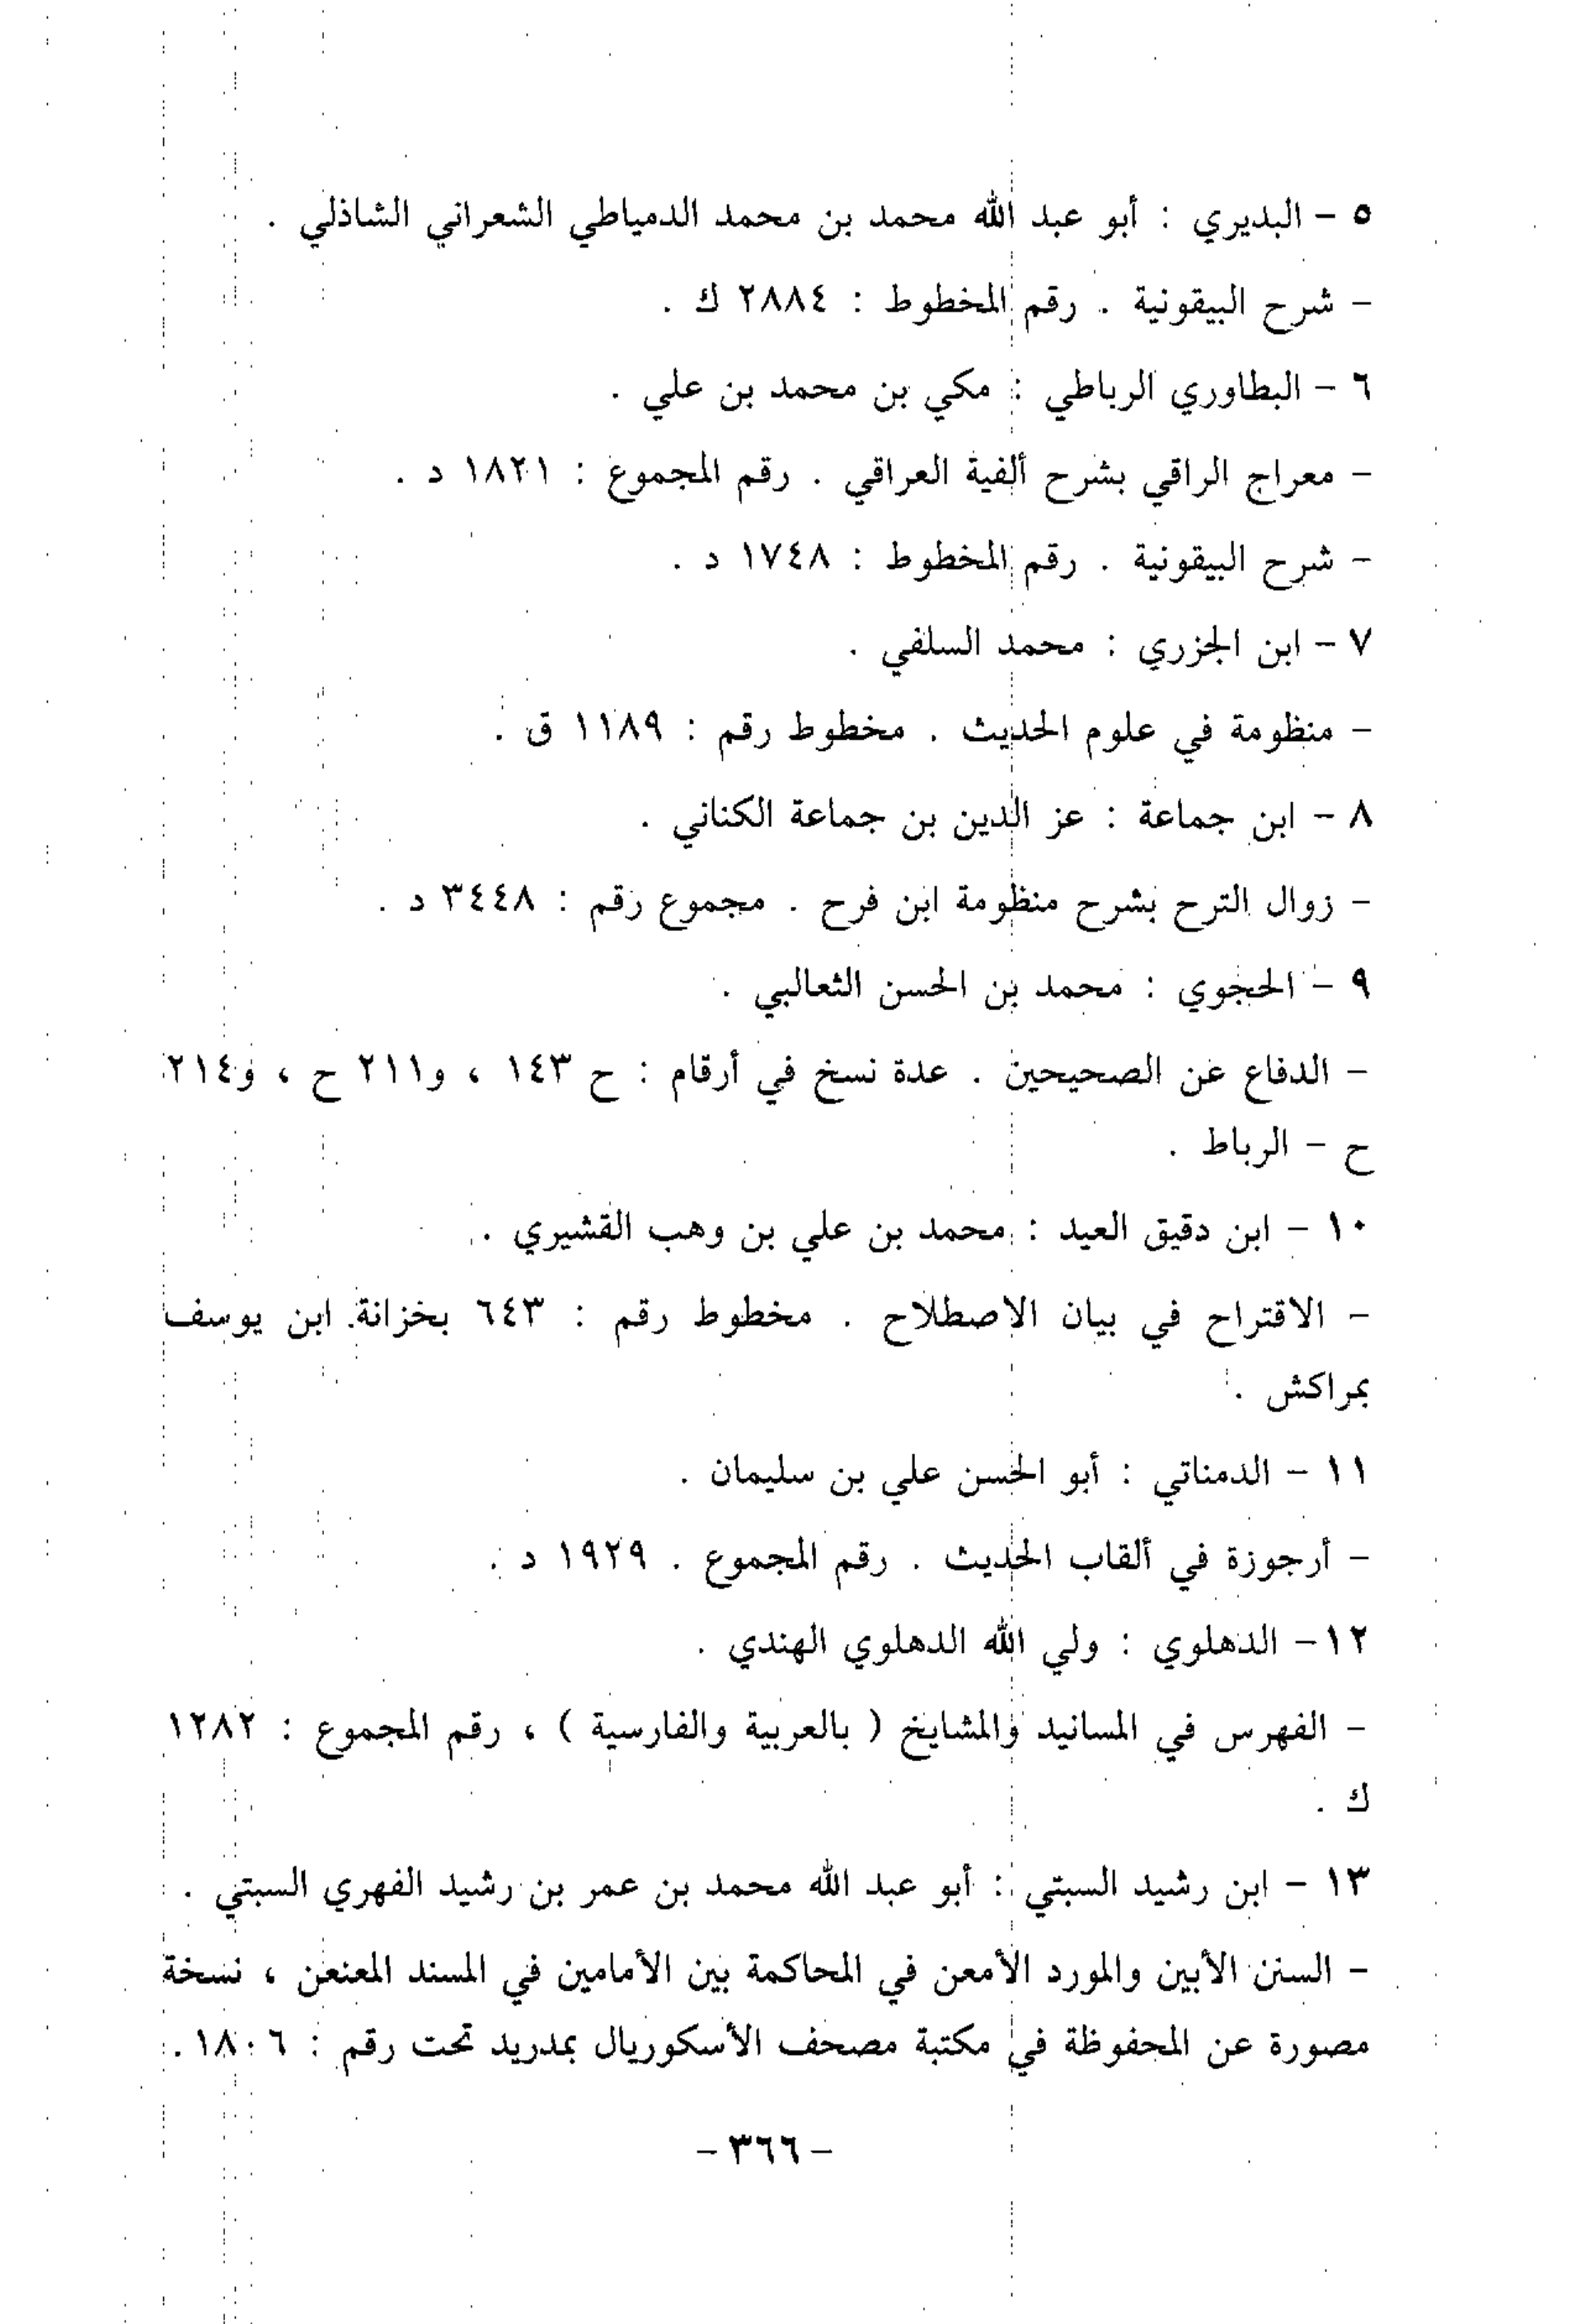 ٥ – البديري : أبو عبد الله محمد بن محمد الدمياطي الشعراني الشاذلي .
– شرح البيقونية . رقم المخطوط : ٢٨٨٤ ك .
٦ – البطاوري الرباطي : مكي بن محمد بن علي .
– معراج الراقي بشرح ألفية العراقي . رقم المجموع : ١٨٢١ د .
– شرح البيقونية . رقم المخطوط : ١٧٤٨ د .
٧ – ابن الجزري : محمد السلفي .
– منظومة في علوم الحديث . مخطوط رقم : ١١٨٩ ق .
٨ – ابن جماعة : عز الدين بن جماعة الكناني .
– زوال الترح بشرح منظومة ابن فرح . مجموع رقم : ٣٤٤٨ د .
٩ – الحجوي : محمد بن الحسن الثعالبي .
– الدفاع عن الصحيحين . عدة نسخ في أرقام : ح ١٤٣ ، و٢١١ ح ، و٢١٤
ح – الرباط .
١٠ – ابن دقيق العيد : محمد بن علي بن وهب القشيري .
– الاقتراح في بيان الاصطلاح . مخطوط رقم : ٦٤٣ بخزانة ابن يوسف
بمراكش .
١١ – الدمناتي : أبو الحسن علي بن سليمان .
– أرجوزة في ألقاب الحديث . رقم المجموع . ١٩٢٩ د .
١٢– الدهلوي : ولي الله الدهلوي الهندي .
– الفهرس في المسانيد والمشايخ ( بالعربية والفارسية ) ، رقم المجموع : ١٢٨٢
ك .
١٣ – ابن رشيد السبتي : أبو عبد الله محمد بن عمر بن رشيد الفهري السبتي .
– السنن الأبين والمورد الأمعن في المحاكمة بين الأمامين في المسند المعنعن ، نسخة
مصورة عن المحفوظة في مكتبة مصحف الأسكوريال بمدريد تحت رقم : ١٨٠٦ .
– ٣٦٦ –